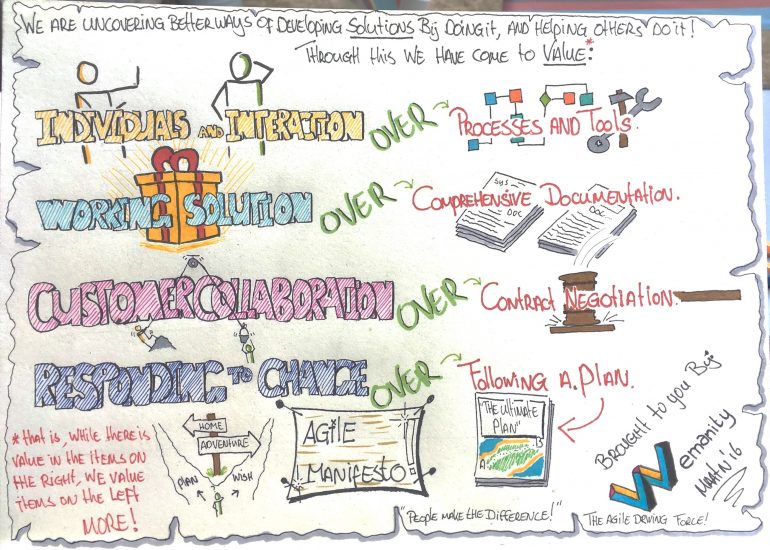 WE ARE UNCOVERING BETTER WAYS OF DEVELOPING SOLUTIONS BY DOING it, AND HELPING OTHERS DO it!
THROUGH this WE HAVE COME to VALUE*:
INDIVIDUALS AND INTERACTION OVER PROCESSES AND TOOLS.
WORKING SOLUTION OVER COMPREHENSIVE DOCUMENTATION.
SYS
DOC
DOC
CUSTOMER COLLABORATION OVER CONTRACT NEGOTIATION.
RESPONDING TO CHANGE OVER FOLLOWING A PLAN.
*that is, WHILE tHERE is
VALUE iN tHE itEMS ON
tHE RIGHT, WE VALUE
itEMS ON tHE LEFT
MORE!
HOME
ADVENTURE
PLAN
WISH
AGiLE
MANIFESTO!
"THE ULTIMATE
PLAN"
A
B
BROUGHT tO YOU By:
Wemanity
'16
"PEOPLE MAKE tHE DiFFERENCE!"
THE AGILE DRIVING FORCE!